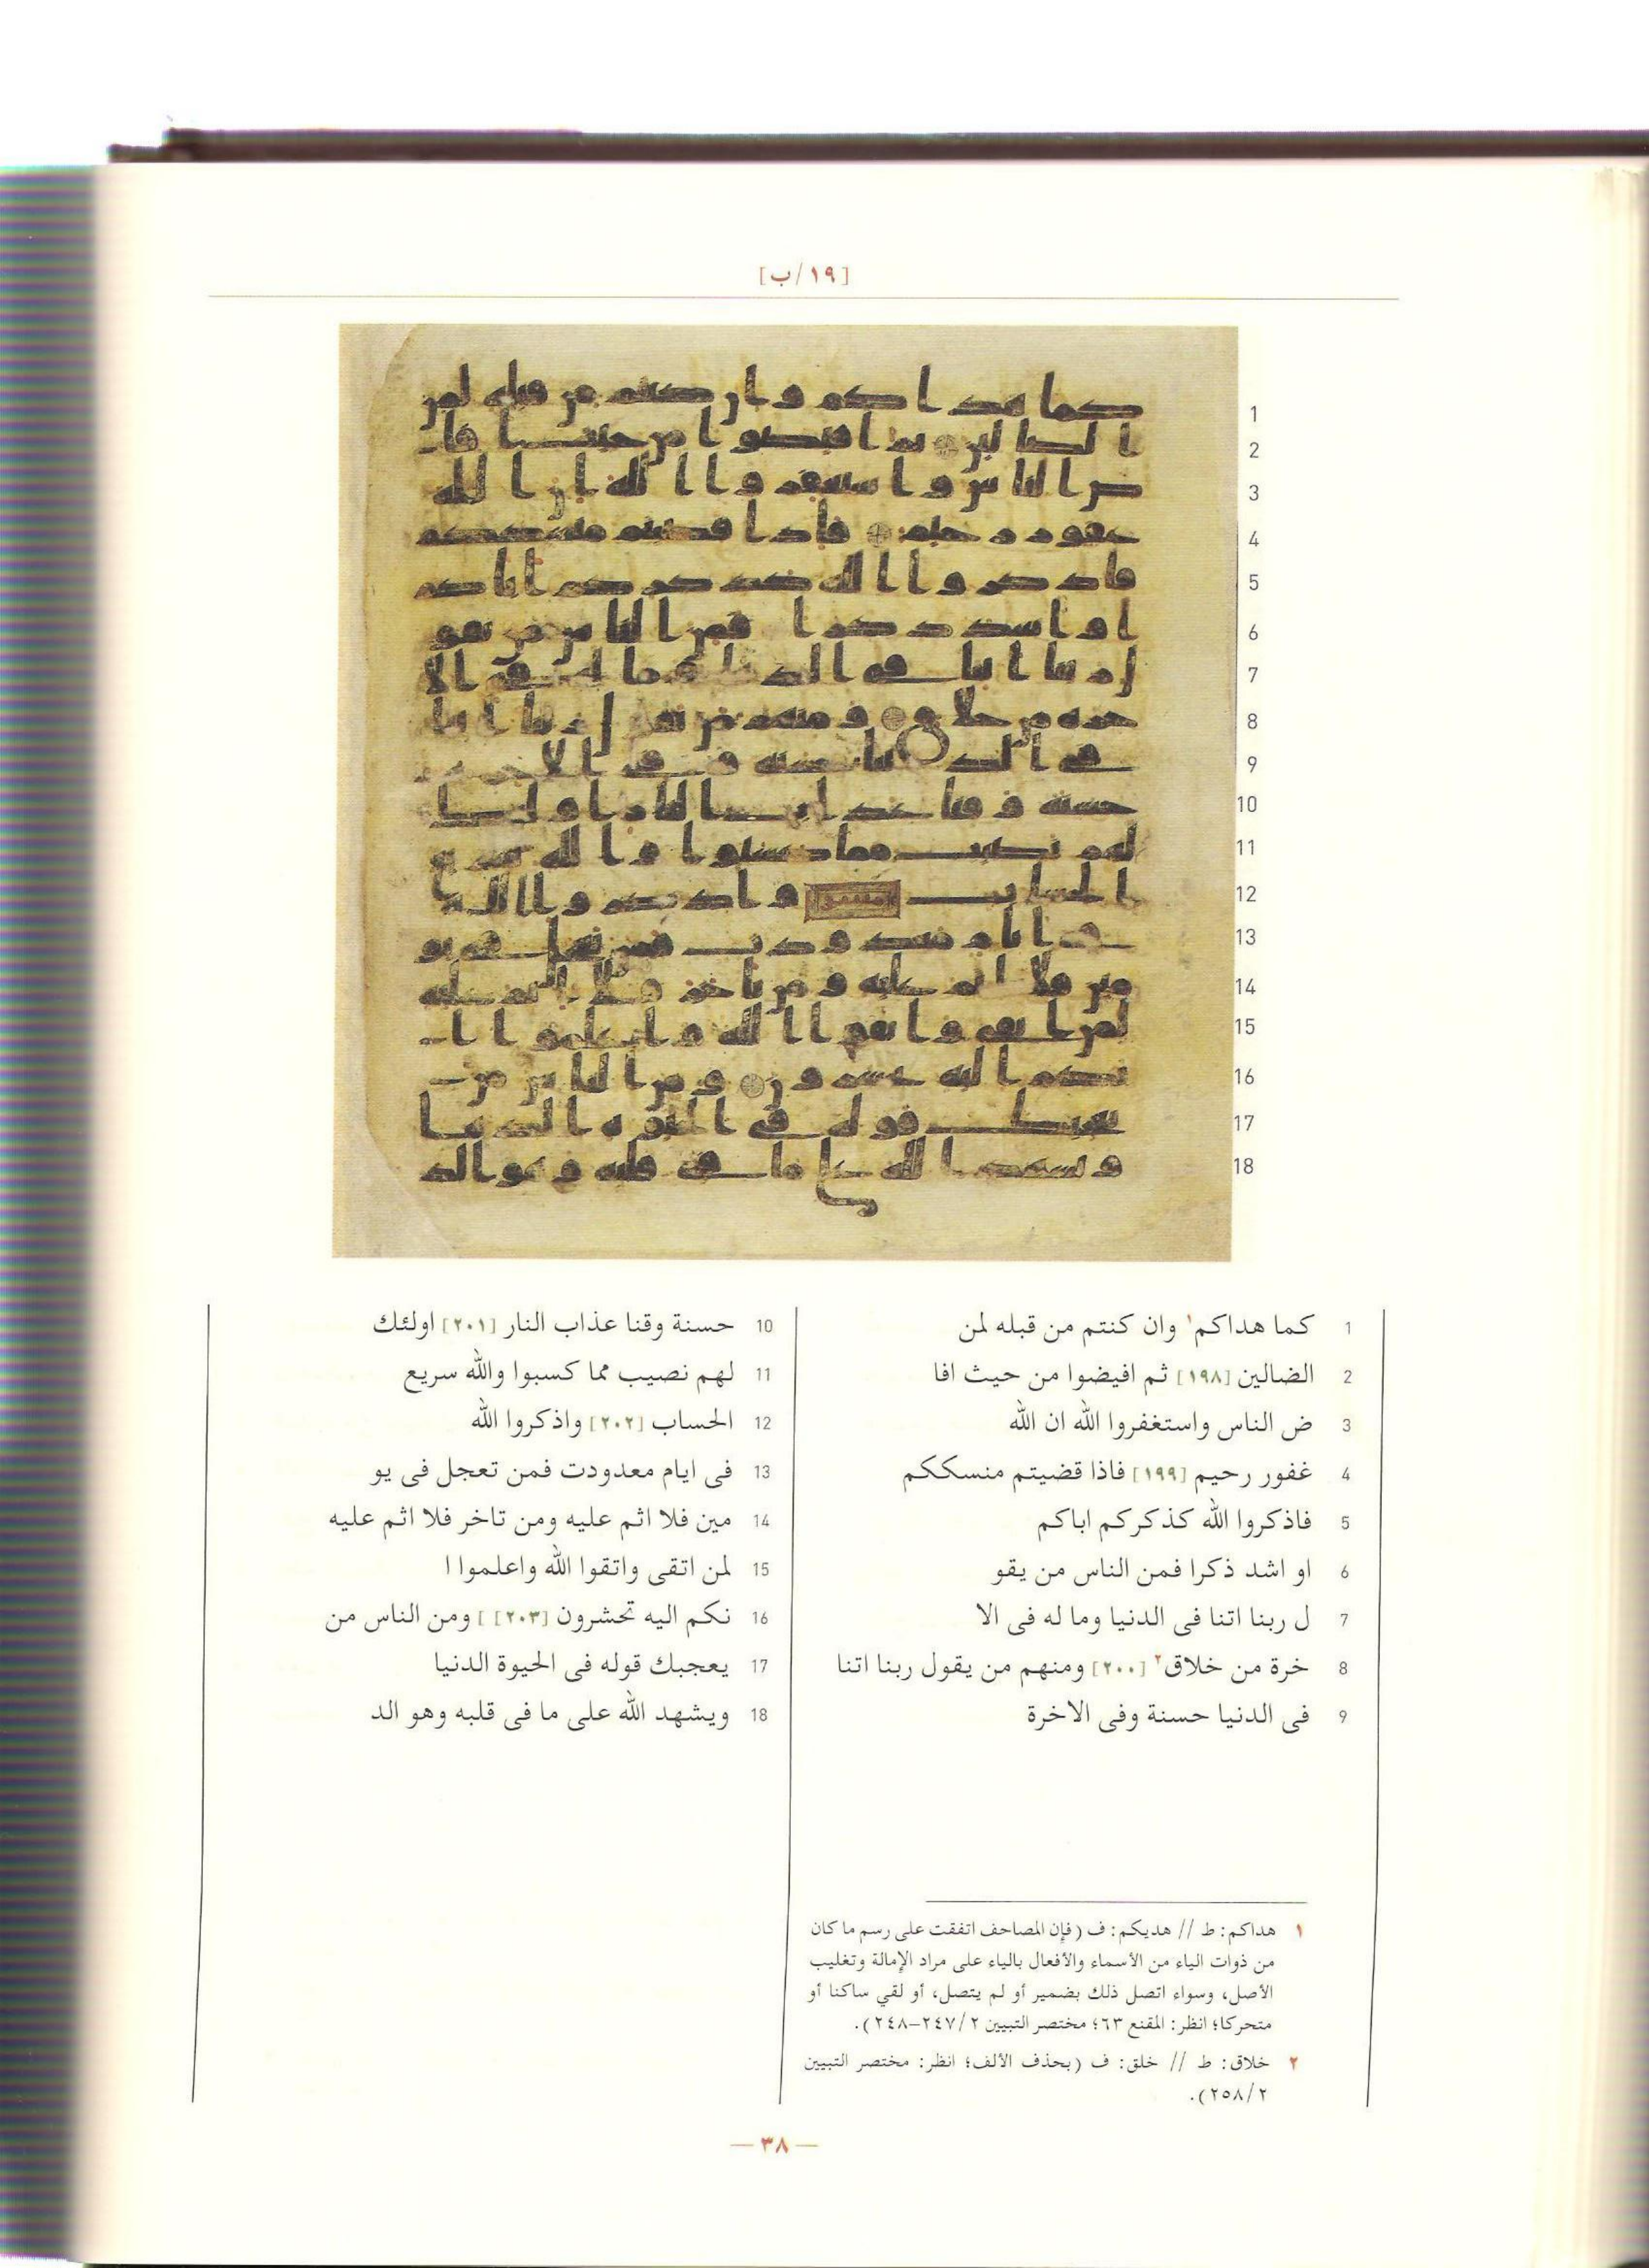 [١٩/ب]
1
2
3
4
5
6
7
8
9
10
11
12
13
14
15
16
17
18
1 كما هداكم١ وان كنتم من قبله لمن
2 الضالين [١٩٨] ثم افيضوا من حيث افا
3 ض الناس واستغفروا الله ان الله
4 غفور رحيم [١٩٩] فاذا قضيتم منسككم
5 فاذكروا الله كذكركم اباكم
6 او اشد ذكرا فمن الناس من يقو
7 ل ربنا اتنا فى الدنيا وما له فى الا
8 خرة من خلاق٢ [٢٠٠] ومنهم من يقول ربنا اتنا
9 فى الدنيا حسنة وفى الاخرة
10 حسنة وقنا عذاب النار [٢٠١] اولئك
11 لهم نصيب مما كسبوا والله سريع
12 الحساب [٢٠٢] واذكروا الله
13 فى ايام معدودت فمن تعجل فى يو
14 مين فلا اثم عليه ومن تاخر فلا اثم عليه
15 لمن اتقى واتقوا الله واعلموا ا
16 نكم اليه تحشرون [٢٠٣] ] ومن الناس من
17 يعجبك قوله فى الحيوة الدنيا
18 ويشهد الله على ما فى قلبه وهو الد
١ هداكم: ط // هديكم: ف (فإن المصاحف اتفقت على رسم ما كان
من ذوات الياء من الأسماء والأفعال بالياء على مراد الإمالة وتغليب
الأصل، وسواء اتصل ذلك بضمير أو لم يتصل، أو لقي ساكنا أو
متحركا؛ انظر: المقنع ٦٣؛ مختصر التبيين ٢/٢٤٧–٢٤٨).
٢ خلاق: ط // خلق: ف (بحذف الألف؛ انظر: مختصر التبيين
٢/٢٥٨).
— ٣٨ —